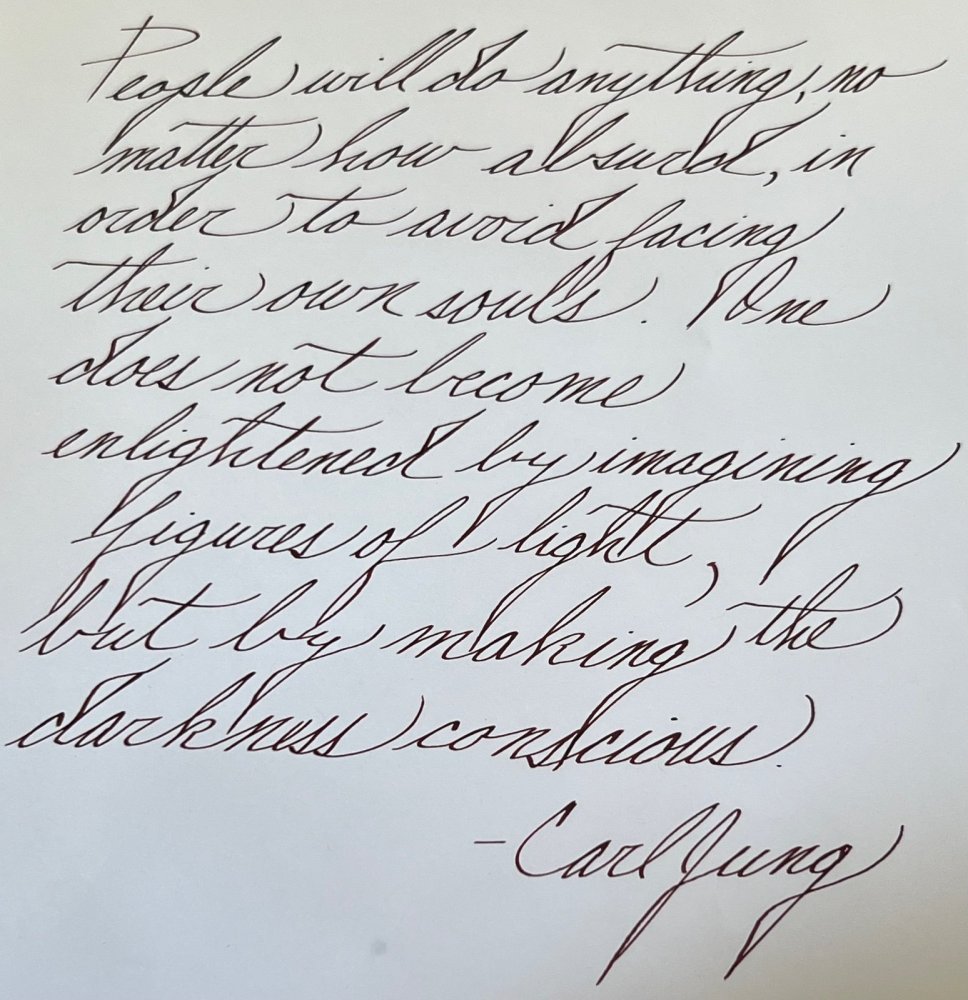 People will do anything, no
matter how absurd, in
order to avoid facing
their own souls. One
does not become
enlightened by imagining
figures of light,
but by making the
darkness conscious.
- Carl Jung